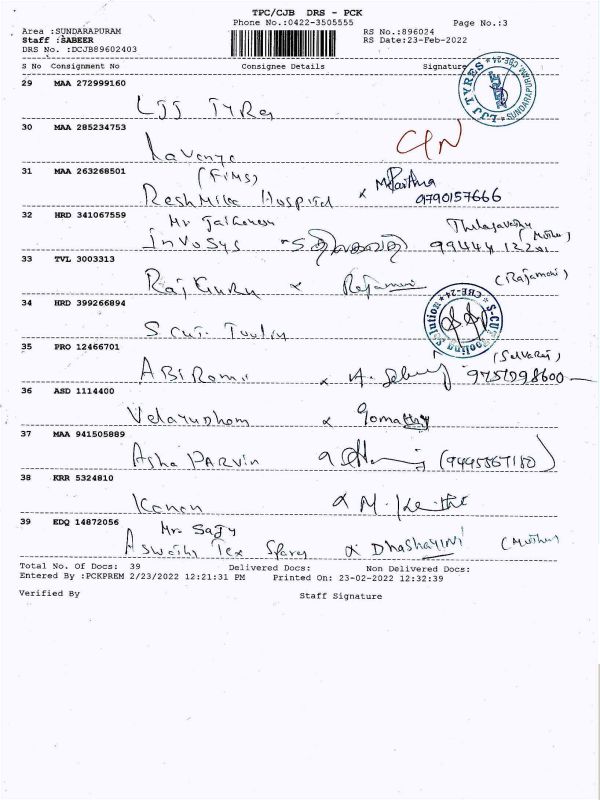 TPC/CJB DRS - PCK
Phone No.:0422-3505555
Page No.:3
Area :SUNDARAPURAM
RS No.:896024
Staff :SABEER
RS Date:23-Feb-2022
DRS No. :DCJB89602403
S No Consignment No Consignee Details Signature
29 MAA 272999160
LJJ TYRES * SUNDARAPURAM, CBE-24 *
LJJ TYRES
30 MAA 285234753
31 MAA 263268501
(FIMS)
Hospital x
9790157666
32 HRD 341067559
Mr
InVoSys
99444
33 TVL 3003313
(Rajamani)
RajGuru x Rajamani
34 HRD 399266894
S-CUT Tooling Solution * CBE-24 *
S CUT
35 PRO 12466701
(Selvaraj)
x A. 9751998600
36 ASD 1114400
Velayudham x Gomathy
37 MAA 941505889
Asha PARVIN
38 KRR 5324810
Kanan x M.
39 EDQ 14872056
Mr. Sajy
Tex x Dhashayini
Total No. Of Docs: 39 Delivered Docs: Non Delivered Docs:
Entered By :PCKPREM 2/23/2022 12:21:31 PM Printed On: 23-02-2022 12:32:39
Verified By Staff Signature